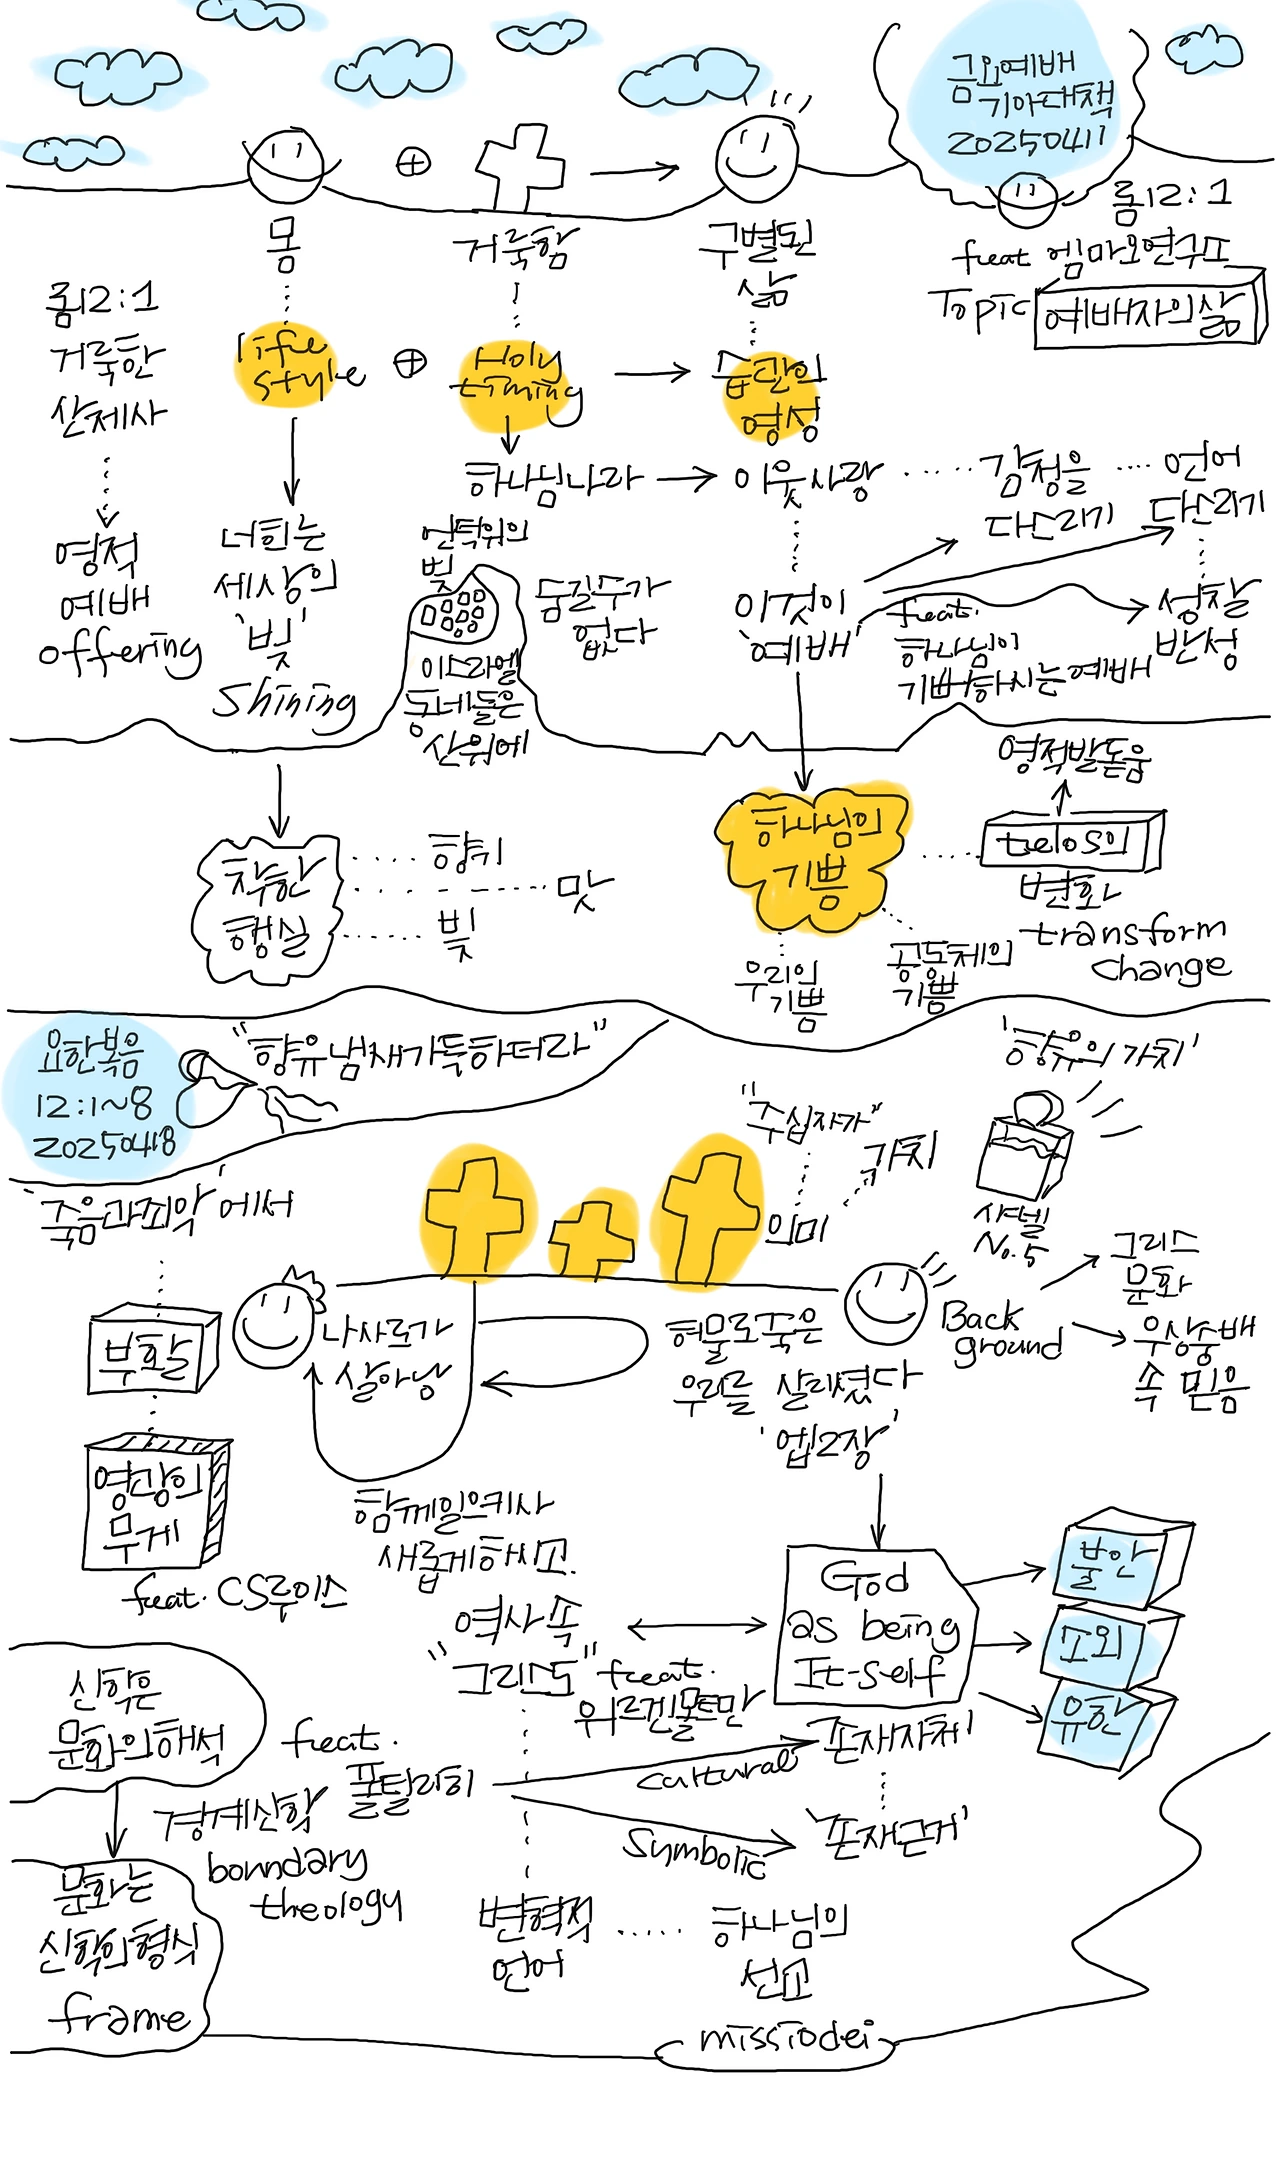 금요예배
기아대책
20250411
롬12:1
feat 엠마오연구포
Topic 예배자의삶
몸
거룩함
구별된
삶
롬12:1
거룩한
산제사
영적
예배
offering
life
style
Holy
timing
습관의
영성
하나님나라
이웃사랑
감정을
다스리기
언어
다스리기
너희는
세상의
'빛'
Shining
언덕위의
빛
숨길수가
없다
이스라엘
동네들은
산위에
이것이
'예배'
feat.
하나님이
기뻐하시는예배
성찰
반성
착한
행실
향기
맛
빛
하나님의
기쁨
우리의
기쁨
공동체의
기쁨
영적발돋움
telos의
변화
transform
change
요한복음
12:1~8
20250418
"향유냄새가득하더라"
'향유의 가치'
샤넬
No.5
"주십자가"
가치
의미
'죽음과죄악'에서
부활
영광의
무게
feat. CS루이스
나사로가
살아남
함께일으키사
새롭게하시고.
허물로죽은
우리를 살리셨다
'엡2장'
Back
ground
그리스
문화
우상숭배
속 믿음
God
as being
It-self
불안
소외
유한
역사 속
"그리스도"
feat.
위르겐몰트만
신학은
문화의해석
feat.
폴틸리히
경계신학
boundary
theology
cultural
존재자체
Symbolic
'존재근거'
문화는
신학의형식
frame
변혁적
언어
하나님의
선교
missiodei